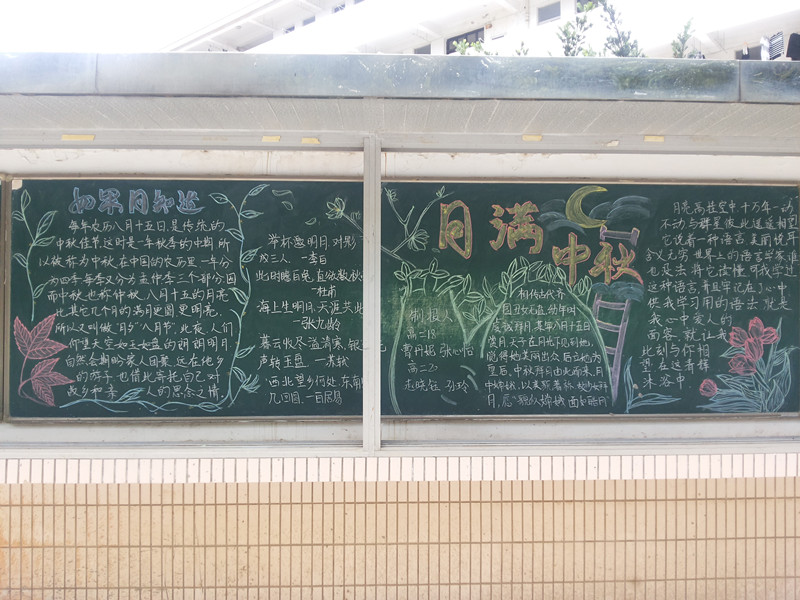 如果月知道
每年农历八月十五日,是传统的
中秋佳节.这时是一年秋季的中期,所
以被称为中秋,在中国的农历里一年分
为四季,每季又分为孟仲季三个部分,因
而中秋也称仲秋,八月十五的月亮
比其它几个月的满月更圆,更明亮,
所以又叫做"月夕""八月节".此夜,人们
仰望天空如玉如盘的朗朗明月
自然会期盼家人团聚.远在他乡
的游子,也借此寄托自己对
故乡和亲人的思念之情
举杯邀明月,对影
成三人.一李白
此时瞻白兔,直欲数秋
一杜甫
海上生明月,天涯共此
一张九龄
暮云收尽溢清寒,银
声转玉盘.一苏轼
西北望乡何处,东南
几回圆.一白居易
月满中秋
制组人
高二
高二
孙玲
相传古代齐
国丑女无盐,幼年时
曾虔诚拜月,某年八月十五日
赏月,天子在月光下见到她,
觉得她美丽出众,后立她为
皇后,中秋拜月由此而来,月
中嫦娥,以美貌著称,故少女拜
月,愿"貌似嫦娥,面如皓月"
月亮高挂空中,十万年一动
不动与群星彼此遥遥相望
它说着一种语言,美丽说耳
含义无穷,世界上的语言学家谁
也是法将它读懂,可我学过
这种语言,并且牢记在了心中
供我学习用的语法,就是
我心中爱人的
面容,就让我
此刻与你相
望,在这香辉
沐浴中.